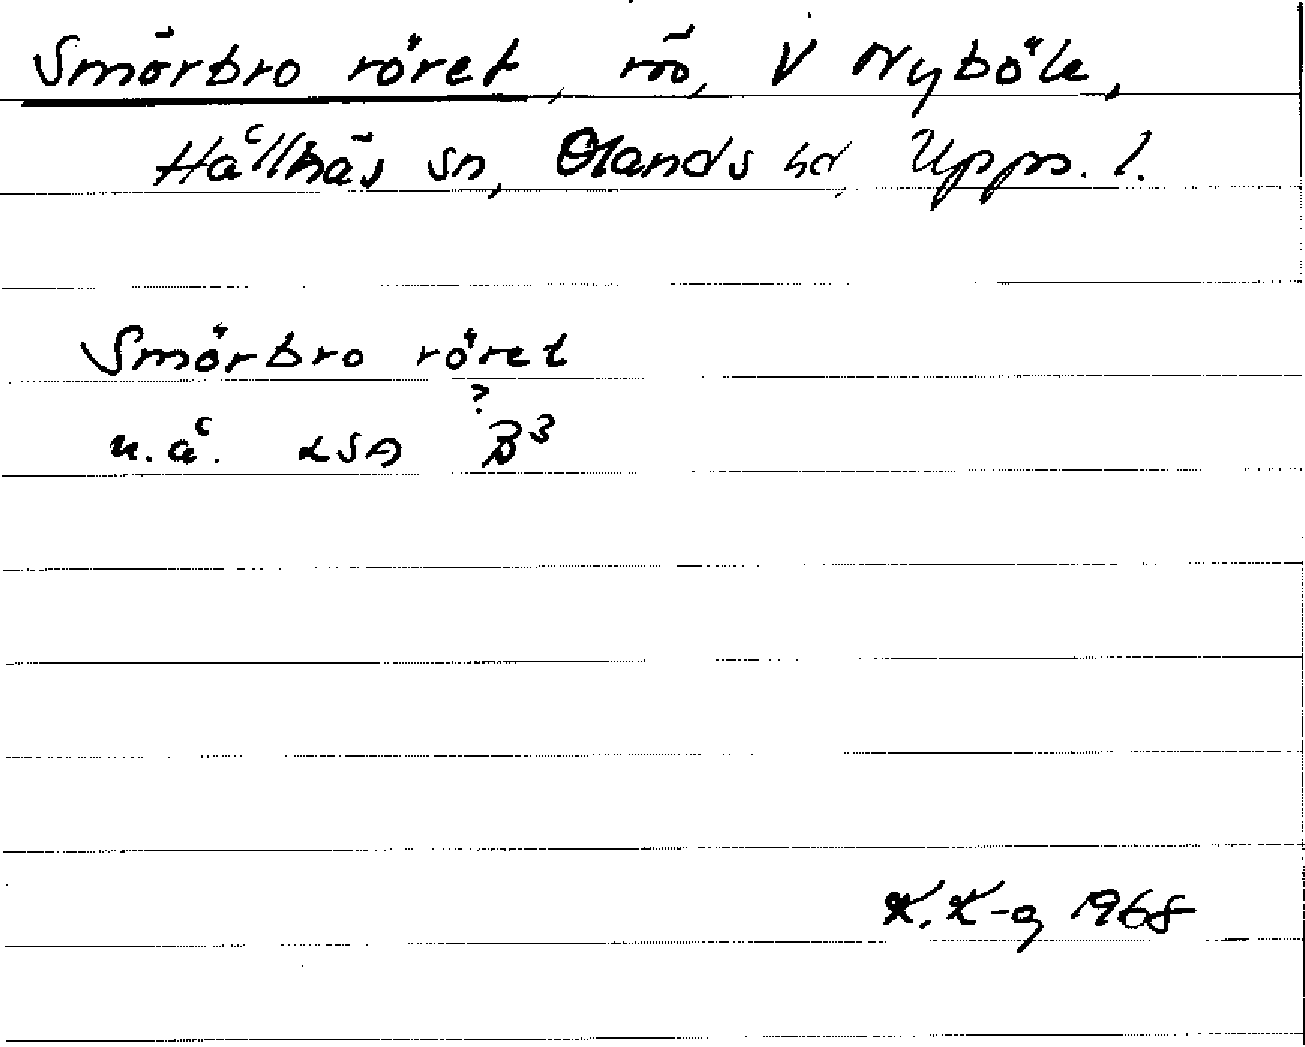 Smörbro röret, rö, V Nyböle,
Hållnäs sn, Olands hd, Upps. l.
Smörbro röret
?
u.å. LSA B3
K. K-g 1968